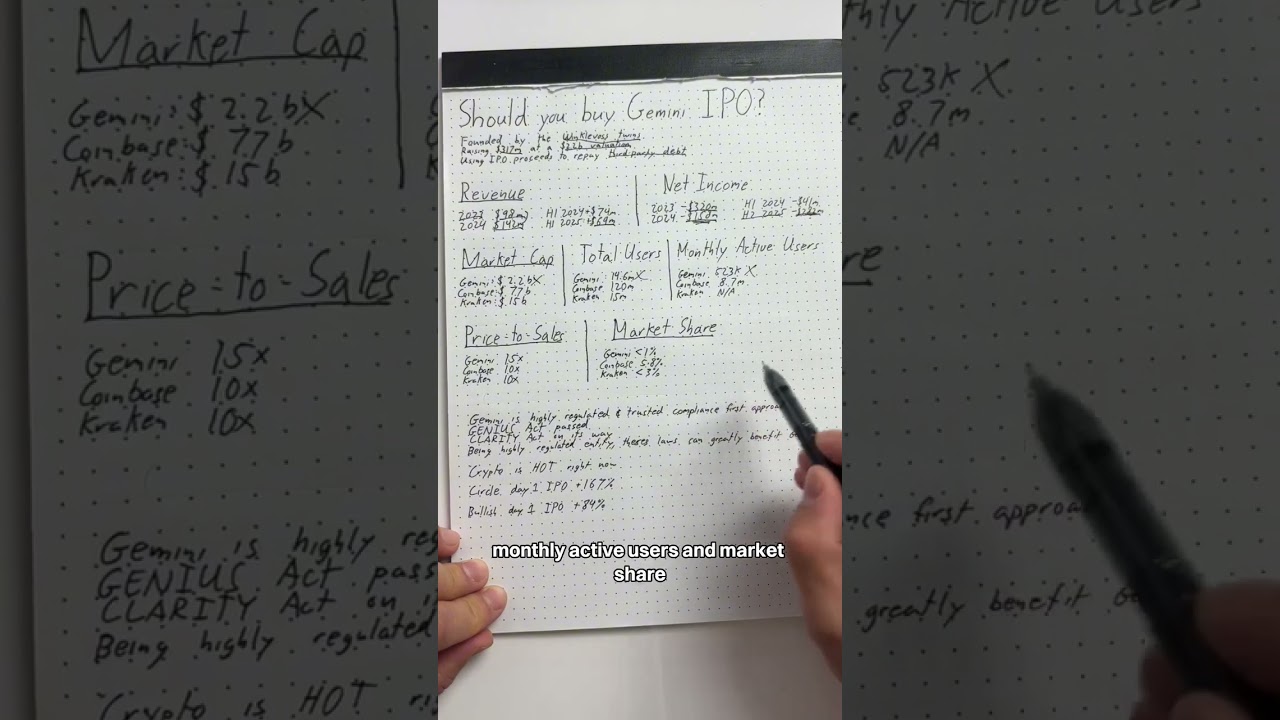 Should you buy Gemini IPO?
Founded by the Winklevoss twins
Raising $317m at a $2.2b valuation
Using IPO proceeds to repay third-party debt
Revenue
2023 $98m H1 2024 +$74m
2024 $142m H1 2025 +$69m
Net Income
2023 -$320m H1 2024 -$41m
2024 -$158m H2 2025 -$282m
Market Cap
Gemini: $2.2b X
Coinbase: $77b
Kraken: $15b
Total Users
Gemini: 14.6m X
Coinbase 120m
Kraken 15m
Monthly Active Users
Gemini 523K X
Coinbase 8.7m
Kraken N/A
Price-to-Sales
Gemini 15x
Coinbase 10x
Kraken 10x
Market Share
Gemini <1%
Coinbase 5.8%
Kraken <3%
Gemini is highly regulated & trusted compliance first approa
GENIUS Act passed
CLARITY Act on it's way
Being highly regulated entity, theses laws can greatly benefit
Crypto is HOT right now
Circle day 1 IPO +167%
Bullish day 1 IPO +84%
monthly active users and market
share
Market Cap
Gemini: $2.2b X
Coinbase: $77b
Kraken: $15b
Price-to-Sales
Gemini 15x
Coinbase 10x
Kraken 10x
Gemini is highly reg
GENIUS Act passed
CLARITY Act on i
Being highly regulated
Crypto is HOT
Monthly Active Users
523K X
8.7m
N/A
re
nce first approa
greatly benefit